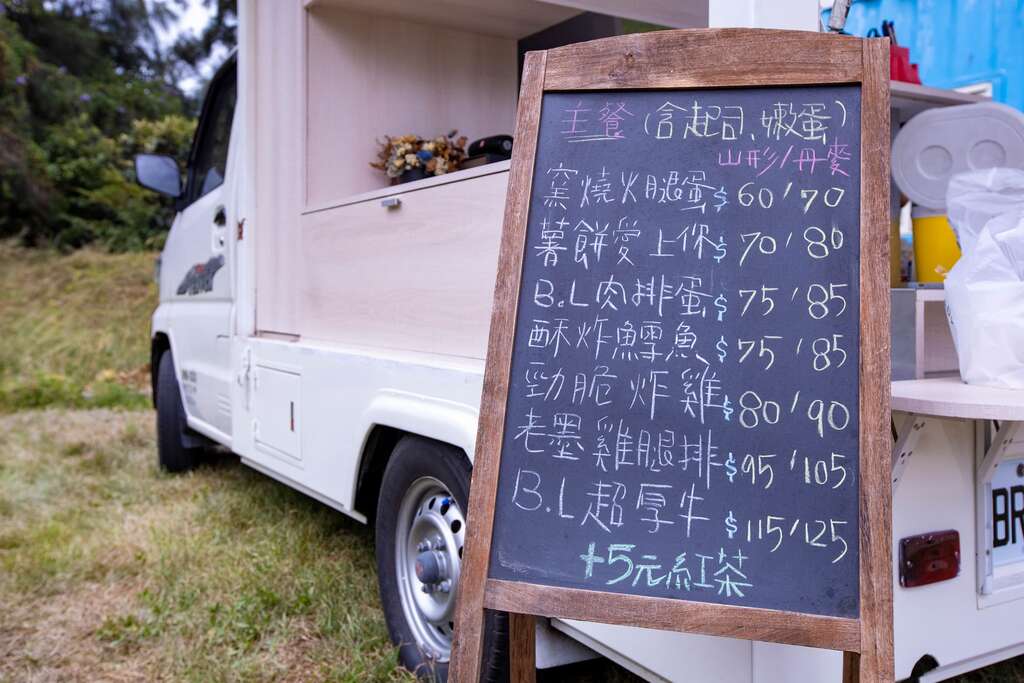 主餐(含起司、嫩蛋)
山形/丹麥
窯燒火腿蛋$60/70
薯餅愛上你$70/80
B.L肉排蛋$75/85
酥炸鱈魚$75/85
勁脆炸雞$80/90
老墨雞腿排$95/105
B.L超厚牛$115/125
+5元紅茶
BR